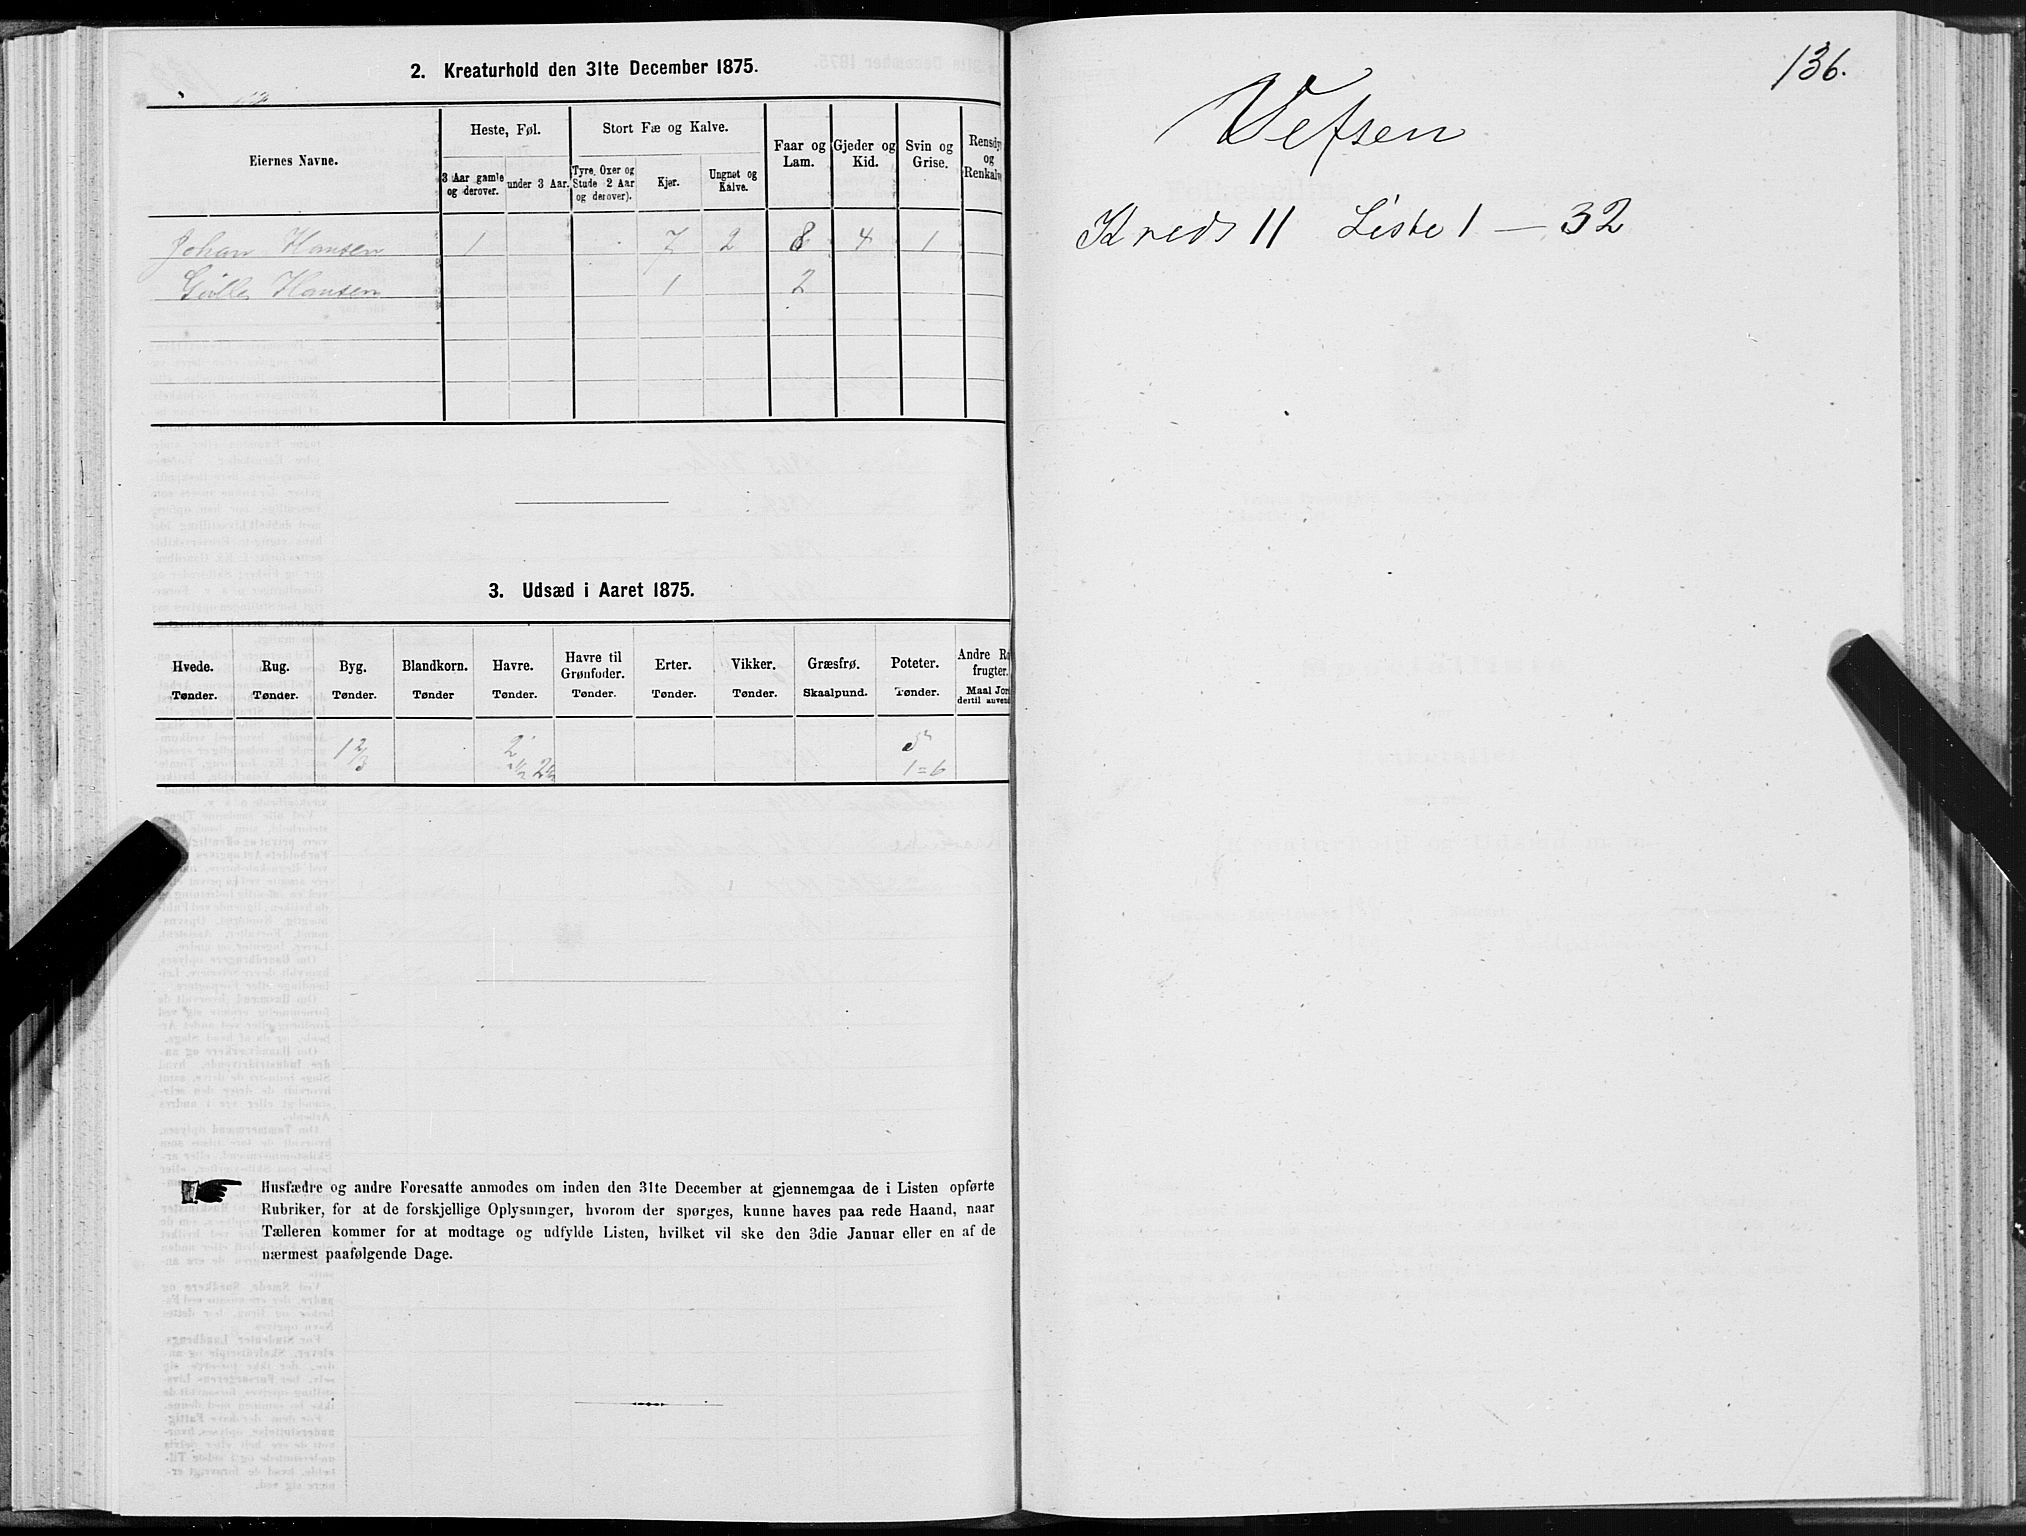 2. Kreaturhold den 31te December 1875.
Eiernes Navne.
Heste, Føl.
3 Aar gamle og derover.
under 3 Aar.
Stort Fæ og Kalve.
Tyre, Oxer og Stude 2 Aar og derover).
Kjør.
Ungnøt og Kalve.
Faar og Lam.
Gjeder og Kid.
Svin og Grise.
Rensdy og Renkalve
Johan Hansen 1 7 2 8 4 1
Hansen 1 2
3. Udsæd i Aaret 1875.
Hvede. Tønder.
Rug. Tønder.
Byg. Tønder.
Blandkorn. Tønder
Havre. Tønder.
Havre til Grønfoder. Tønder.
Erter. Tønder.
Vikker. Tønder.
Græsfrø. Skaalpund.
Poteter. Tønder.
Andre Ro frugter. Maal Jor dertil anvend
1 2/3 2 5
1/2 2 1/2 1=6
Husfædre og andre Foresatte anmodes om inden den 31te December at gjennemgaa de i Listen opførte
Rubriker, for at de forskjellige Oplysninger, hvorom der spørges, kunne haves paa rede Haand, naar
Tælleren kommer for at modtage og udfylde Listen, hvilket vil ske den 3die Januar eller en af de
nærmest paafølgende Dage.
136.
Vefsen
Kreds 11 Liste 1 — 32